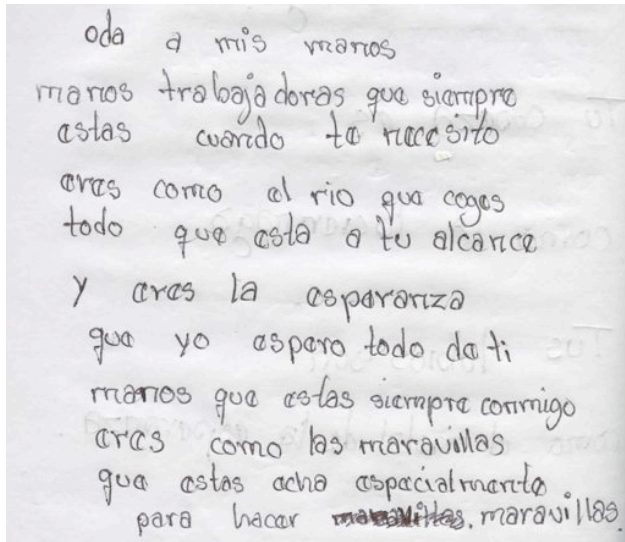 oda a mis manos
manos trabajadoras que siempre
estas cuando te necesito
eres como el rio que coges
todo que esta a tu alcance
y eres la esperanza
que yo espero todo de ti
manos que estas siempre conmigo
eres como las maravillas
que estas echa especialmente
para hacer maravillas. maravillas